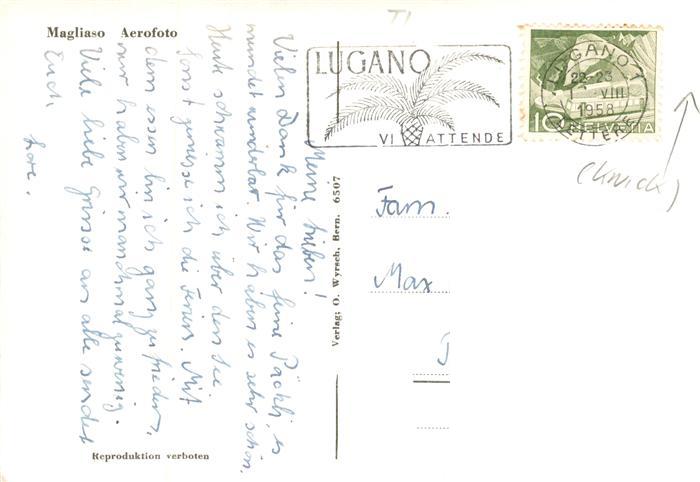 Magliaso Aerofoto
Meine Lieben!
Vielen Dank für das feine Päckli, es
mundet wunderbar. Wir haben es sehr schön.
Heute schwamm ich über den See
sonst geniesse ich die Ferien. Mit
dem essen bin ich ganz zufrieden,
nur haben wir manchmal zu wenig.
Viele liebe Grüsse an alle sendet
Euch
Lore.
Reproduktion verboten
Verlag: O. Wyrsch, Bern. 6507
TI
LUGANO
VI ATTENDE
LUGANO 1
22-23
VIII
1958
LETTERE
10 HELVETIA
(Knick)
Fam.
Max